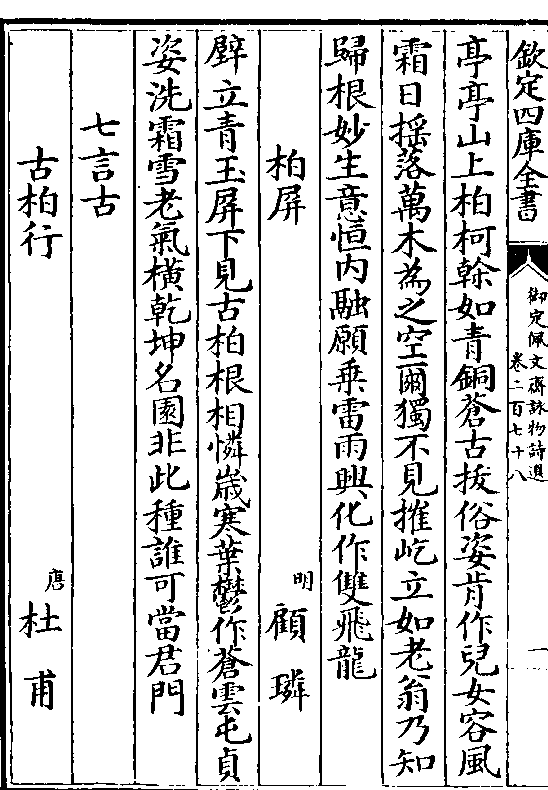 欽定四庫全書
御定佩文齋詠物詩選
卷二百七十八
一
亭亭山上柏柯榦如青銅蒼古拔俗姿肯作兒女容風
霜日摇落萬木為之空爾獨不見摧屹立如老翁乃知
歸根妙生意恒内融願乗雷雨興化作雙飛龍
柏屏
明
顧璘
壁立青玉屏下見古柏根相憐歲寒葉鬱作蒼雲屯貞
姿洗霜雪老氣横乾坤名園非此種誰可當君門
七言古
古柏行
唐
杜甫